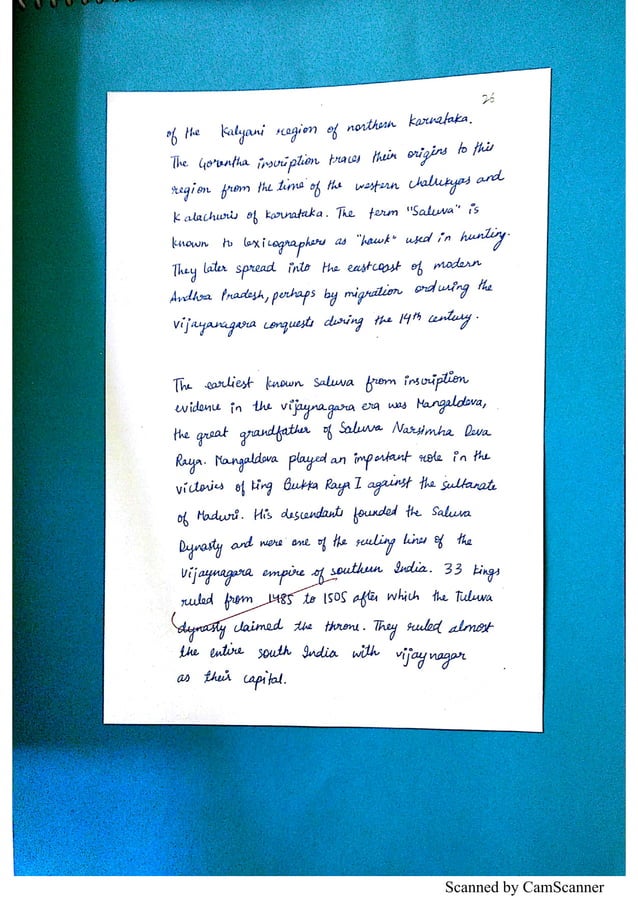 26
of the Kalyani region of northern Karnataka.
The Gorantha inscription traces their origins to this
region from the time of the western chalukyas and
Kalachuris of Karnataka. The term "Saluva" is
known to lexicographers as "hawk" used in hunting.
They later spread into the eastcoast of modern
Andhra Pradesh, perhaps by migration orduring the
Vijayanagara conquests during the 14th century.
The earliest known Saluva from inscription
evidence in the vijaynagara era was Mangaldeva,
the great grandfather of Saluva Narsimha Deva
Raya. Mangaldeva played an important role in the
victories of king Bukka Raya I against the sultanate
of Maduri. His descendants founded the Saluva
Dynasty and were one of the ruling lines of the
Vijaynagara empire of southern India. 33 kings
ruled from 1485 to 1505 after which the Tuluva
dynasty claimed the throne. They ruled almost
the entire south India with vijaynagar
as their capital.
Scanned by CamScanner